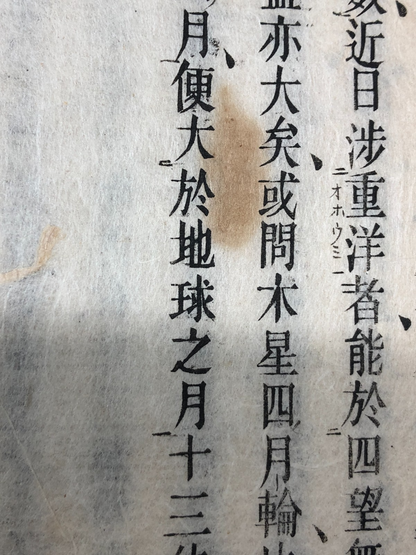 近日涉重洋者能於四望無
亦大矣、或問木星四月輪、
月、便大於地球之月十三